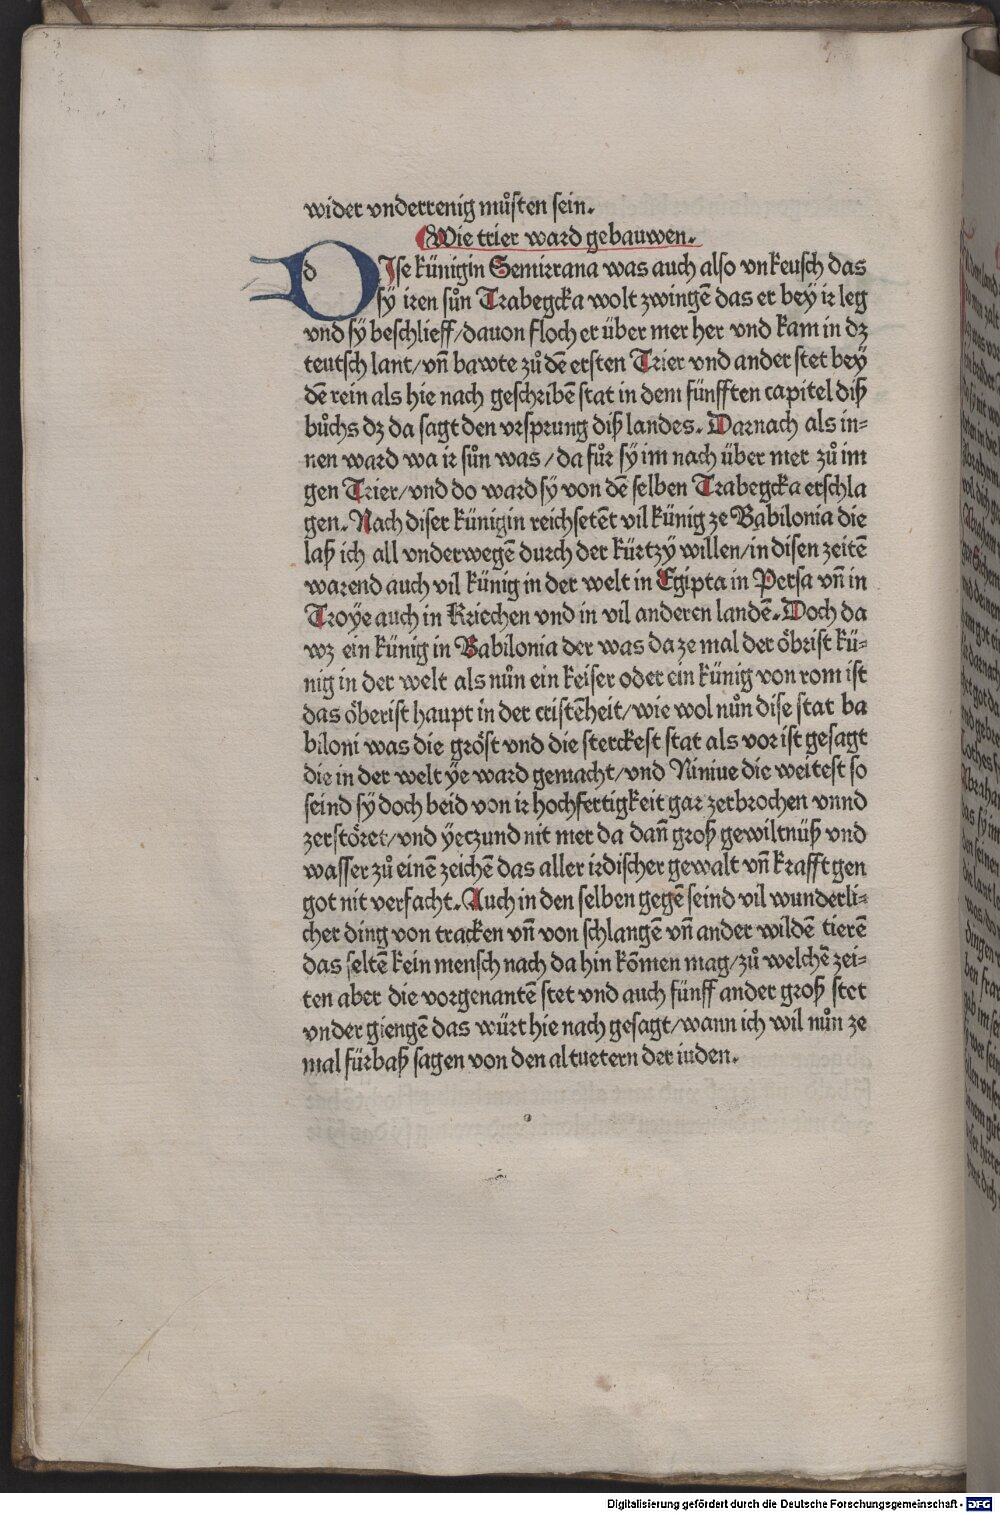 wider vnderrenig můsten sein.
Wie trier ward gebauwen.
DIse künigin Semirrana was auch also vnkeusch das
sÿ iren sůn Trabegcka wolt zwingē das er beÿ ir leg
vnd sÿ beschlieff/dauon floch er über mer her vnd kam in dz
teutsch lant/vn̄ bawte zů dē ersten Trier vnd ander stet beÿ
dē rein als hie nach geschribē stat in dem fünfften capitel diß
bůchs dz da sagt den vrsprung diß landes. Darnach als in⸗
nen ward wa ir sůn was/da fůr sÿ im nach über mer zů im
gen Trier/vnd do ward sÿ von dē selben Trabegcka erschla
gen. Nach diser künigin reichsetēt vil künig ze Babilonia die
laß ich all vnderwegē durch der kürtzÿ willen/in disen zeitē
warend auch vil künig in der welt in Egipta in Persa vn̄ in
Troÿe auch in Kriechen vnd in vil anderen landē. Doch da
wz ein künig in Babilonia der was da ze mal der öbrist kü⸗
nig in der welt als nůn ein keiser oder ein künig von rom ist
das öberist haupt in der cristēheit/wie wol nůn dise stat ba
biloni was die gröst vnd die sterckest stat als vor ist gesagt
die in der welt ÿe ward gemacht/vnd Niniue die weitest so
seind sÿ doch beid von ir hochfertigkeit gar zerbrochen vnnd
zerstöret/vnd ÿeczund nit mer da dan̄ groß gewiltnüß vnd
wasser zů einē zeichē das aller irdischer gewalt vn̄ krafft gen
got nit verfacht. Auch in den selben gegē seind vil wunderli⸗
cher ding von tracken vn̄ von schlangē vn̄ ander wildē tierē
das seltē kein mensch nach da hin kōmen mag/zů welchē zei⸗
ten aber die vorgenantē stet vnd auch fünff ander groß stet
vnder giengē das würt hie nach gesagt/wann ich wil nůn ze
mal fürbaß sagen von den altuetern der iuden.
Digitalisierung gefördert durch die Deutsche Forschungsgemeinschaft - DFG